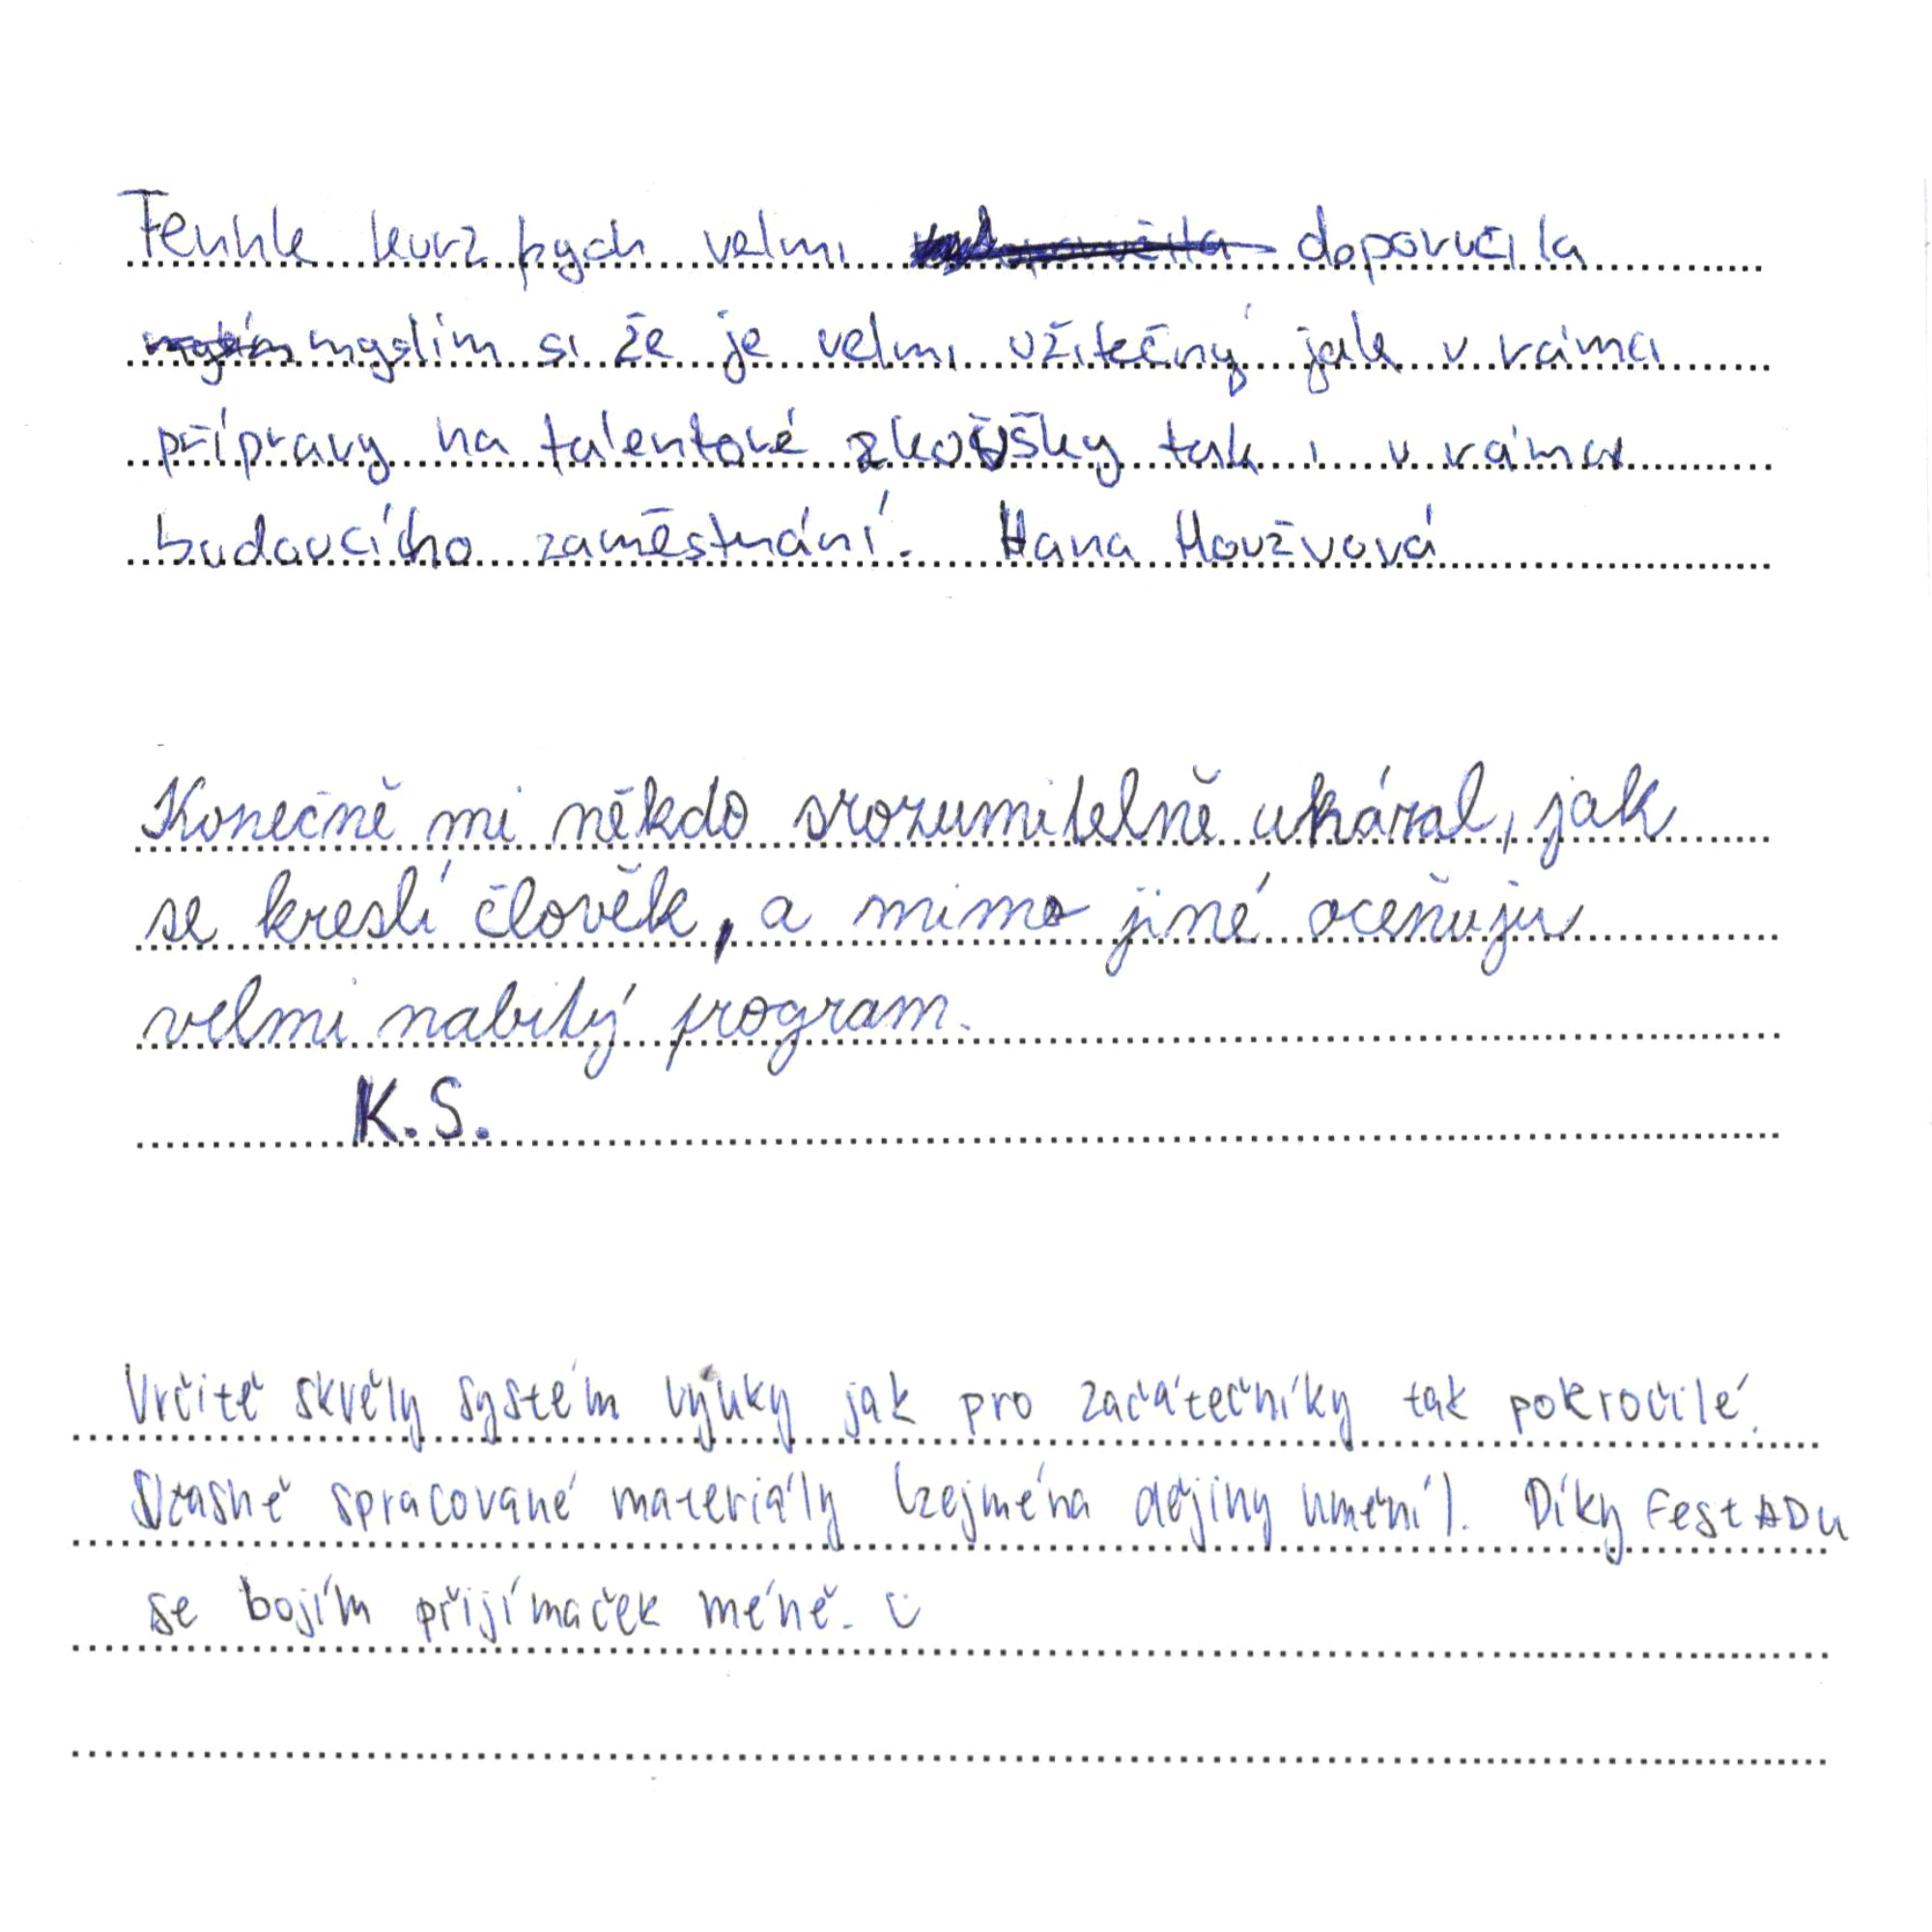 Tenhle kurz bych velmi doporučila
myslím si že je velmi užitečný jak v rámci
přípravy na talentové zkoušky tak i v rámci
budoucího zaměstnání. Hana
Konečně mi někdo srozumitelně ukázal, jak
se kreslí člověk, a mimo jiné oceňuju
velmi nabitý program.
K.S.
Určitě skvělý systém výuky jak pro začátečníky tak pokročilé.
Úžasně spracované materiály (zejména dějiny umění). Díky FestADu
se bojím přijímaček méně. ☺